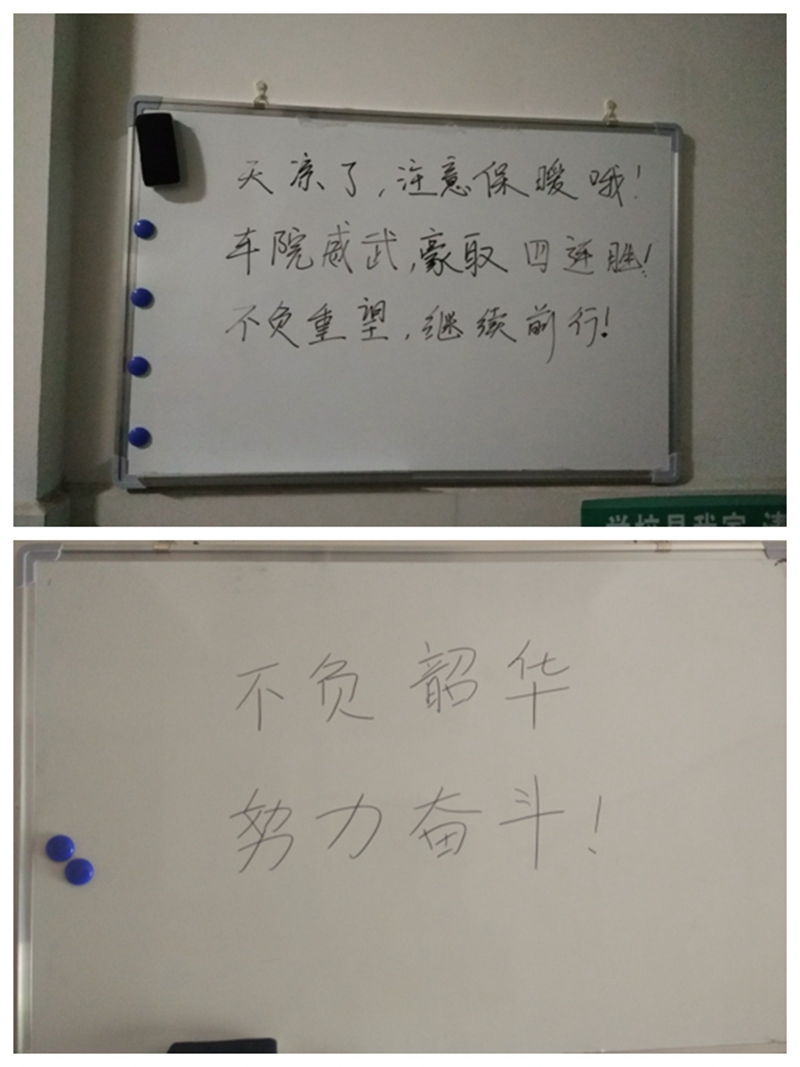 天凉了,注意保暖哦!
车院威武,豪取四连胜!
不负重望,继续前行!
学校是我家 请
不负韶华
努力奋斗!